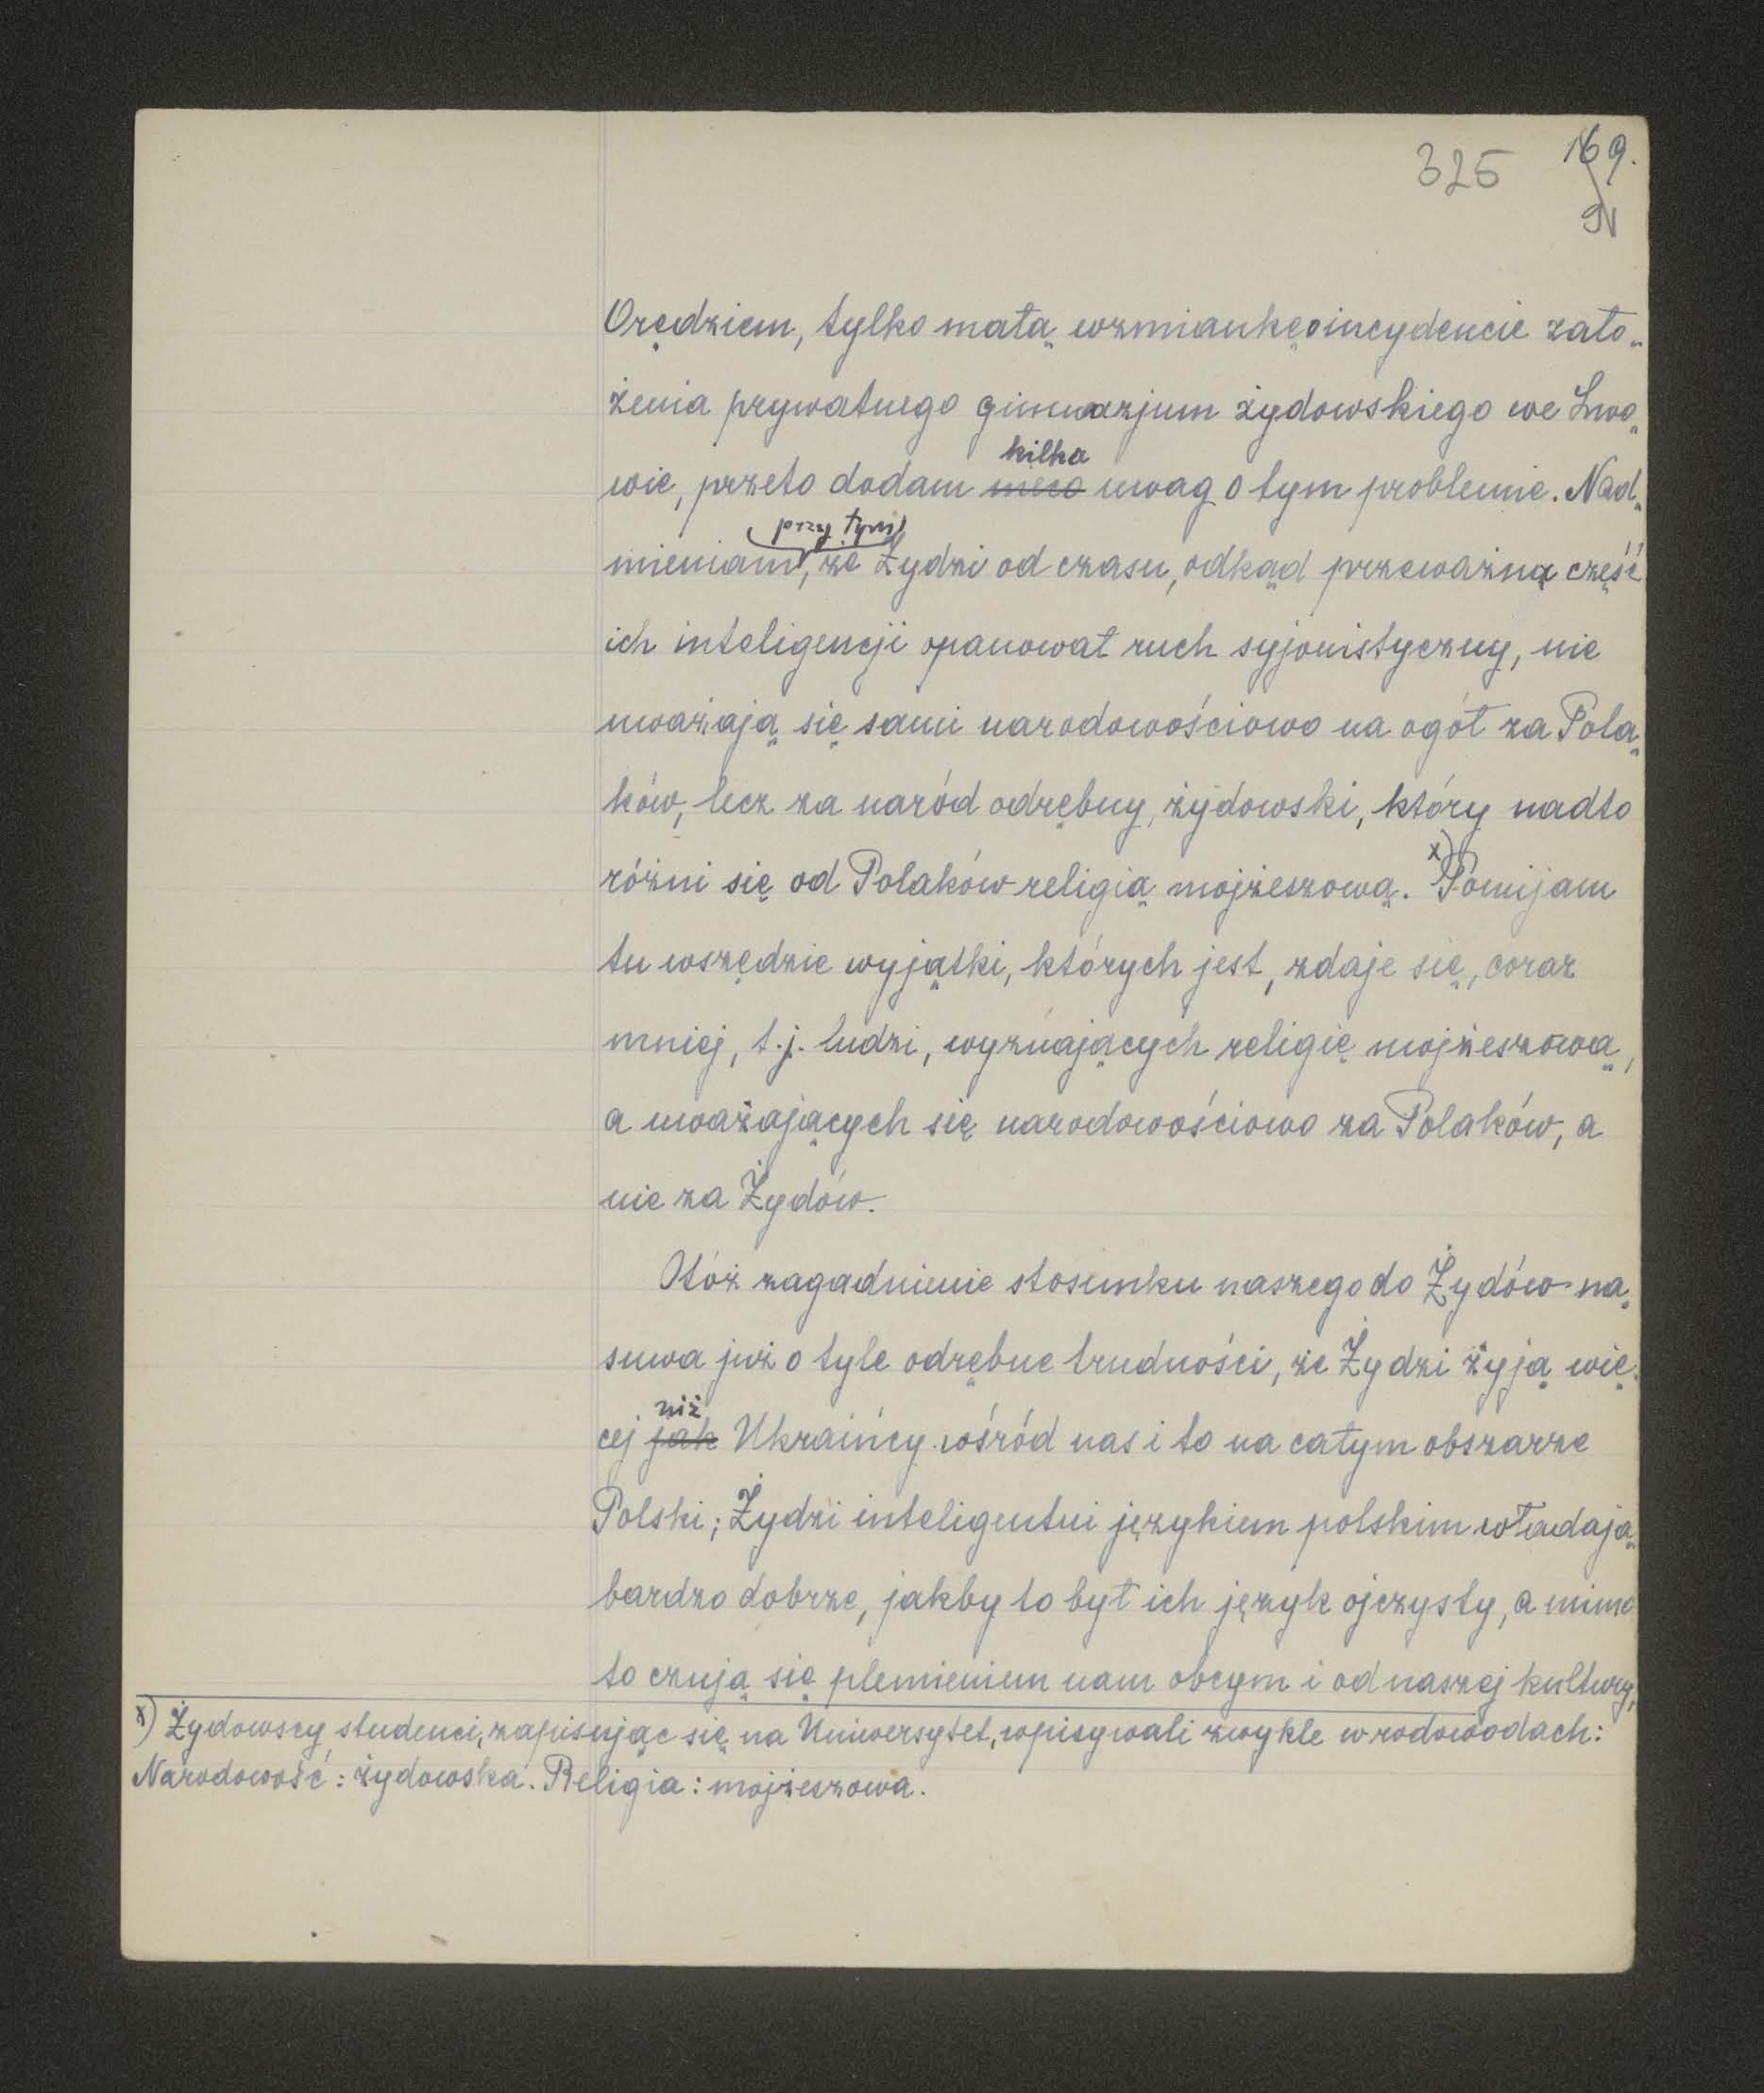 325 169.
Orędziem, tylko małą wzmiankę o incydencie zało„
żenia prywatnego gimnazjum żydowskiego we Lwo„
kilka
wie, przeto dodam nieco uwag o tym problemie. Nad„
przy tym
mieniam, że Żydzi od czasu, odkąd przeważną część
ich inteligencji opanował ruch syjonistyczny, nie
uważają się sami narodowościowo na ogół za Pola„
ków, lecz za naród odrębny, żydowski, który nadto
różni się od Polaków religią mojżeszową. x) Pomijam
tu wszędzie wyjątki, których jest, zdaje się, coraz
mniej, t.j. ludzi, wyznających religię mojżeszową,
a uważających się narodowościowo za Polaków, a
nie za Żydów.
Otóż zagadnienie stosunku naszego do Żydów na„
suwa już o tyle odrębne trudności, że Żydzi żyją wię„
niż
cej jak Ukraińcy wśród nas i to na całym obszarze
Polski; Żydzi inteligentni językiem polskim władają
bardzo dobrze, jakby to był ich język ojczysty, a mimo
to czują się plemieniem nam obcym i od naszej kultury,
x) Żydowscy studenci, zapisując się na Uniwersytet, wpisywali zwykle w rodowodach:
Narodowość: żydowska. Religia: mojżeszowa.